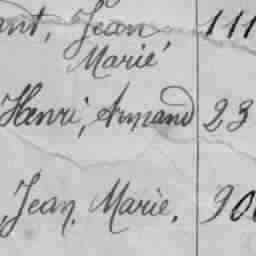 ant, Jean 111
Marie
Henri, Armand 23
Jean, Marie. 900